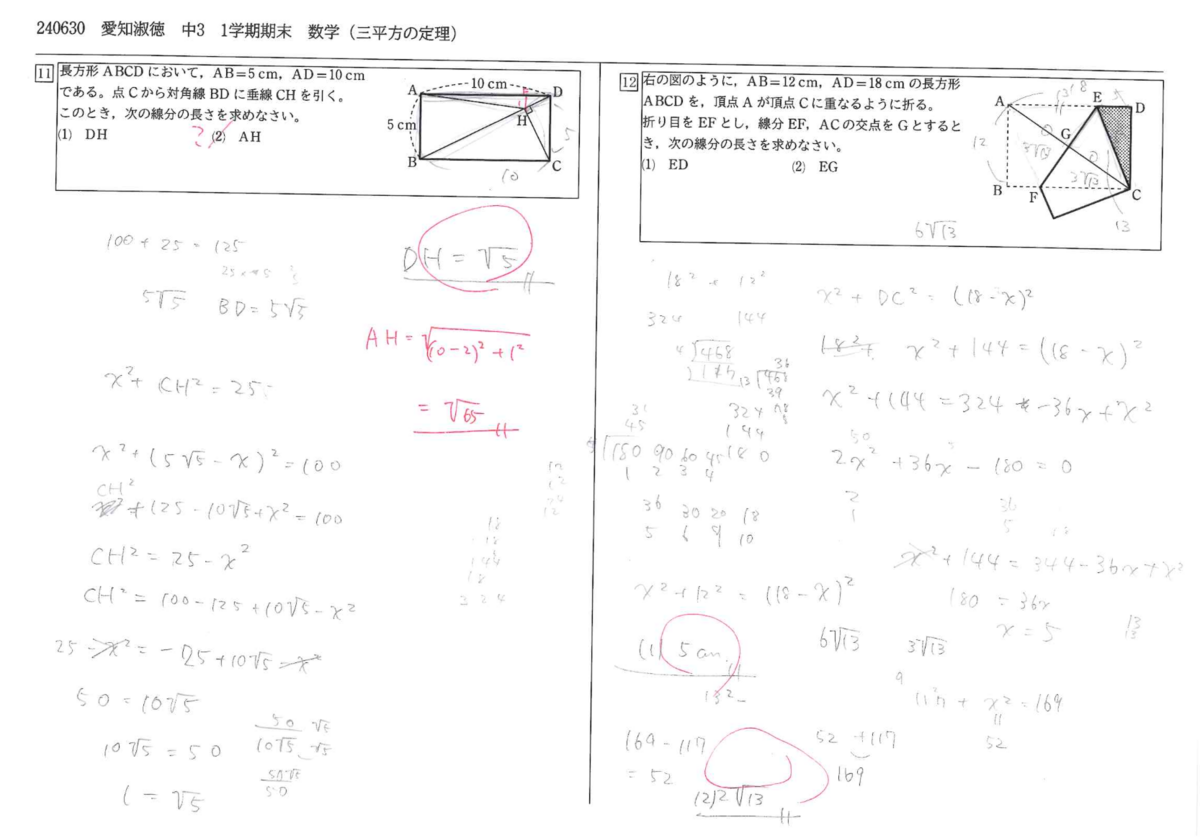 240630 愛知淑徳 中3 1学期期末 数学（三平方の定理）
11 長方形 ABCD において，AB=5 cm，AD=10 cm
である。点 C から対角線 BD に垂線 CH を引く。
このとき，次の線分の長さを求めなさい。
(1) DH (2) AH
10 cm
A D
H
5 cm
5
B C
10
100 + 25 = 125
5√5 BD = 5√5
DH = √5
AH = √(10-2)² + 1²
= √65
x² + CH² = 25
x² + (5√5 - x)² = 100
CH²
+ 125 - 10√5 + x² = 100
CH² = 25 - x²
CH² = 100 - 125 + 10√5 - x²
25 - x² = -25 + 10√5 - x²
50 = 10√5
10√5 = 50
50 √5
10√5 √5
50√5
50
( = √5
12 右の図のように，AB=12 cm，AD=18 cm の長方形
ABCD を，頂点 A が頂点 C に重なるように折る。
折り目を EF とし，線分 EF，AC の交点を G とすると
き，次の線分の長さを求めなさい。
(1) ED (2) EG
A E D
18
5
G
12
3√13
3√13
B F C
13
6√13
18² + 12²
324 144
x² + DC² = (18 - x)²
18² + x² + 144 = (18 - x)²
x² + 144 = 324 - 36x + x²
2x² + 36x - 180 = 0
4 468
13 468
36
39
78
324
144
180 90 60 45
1 2 3 4
36 30 20 18
5 6 9 10
x² + 144 = 344 - 36x + x²
x² + 12² = (18 - x)²
180 = 36x
x = 5
(1) 5 cm
6√13 3√13
13²-
117 + x² = 169
52
169 - 117
= 52
52 + 117
169
(2) 2√13